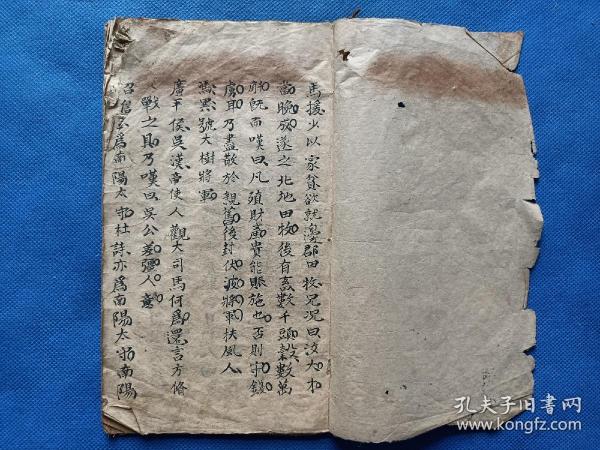 馬援少以家貧欲就邊郡田牧兄况曰汝大才
當晚成遂之北地田牧後有畜數千頭穀數萬
斛既而嘆曰凡殖財產貴能賑施也否則守錢
虜耳乃盡散於親舊後封伏波將軍扶風人
馮異號大樹將軍
廣平侯吳漢帝使人觀大司馬何爲還言方脩
戰之具乃嘆曰吳公差彊人意
召信臣爲南陽太守杜詩亦爲南陽太守南陽
孔夫子旧书网
www.kongfz.com